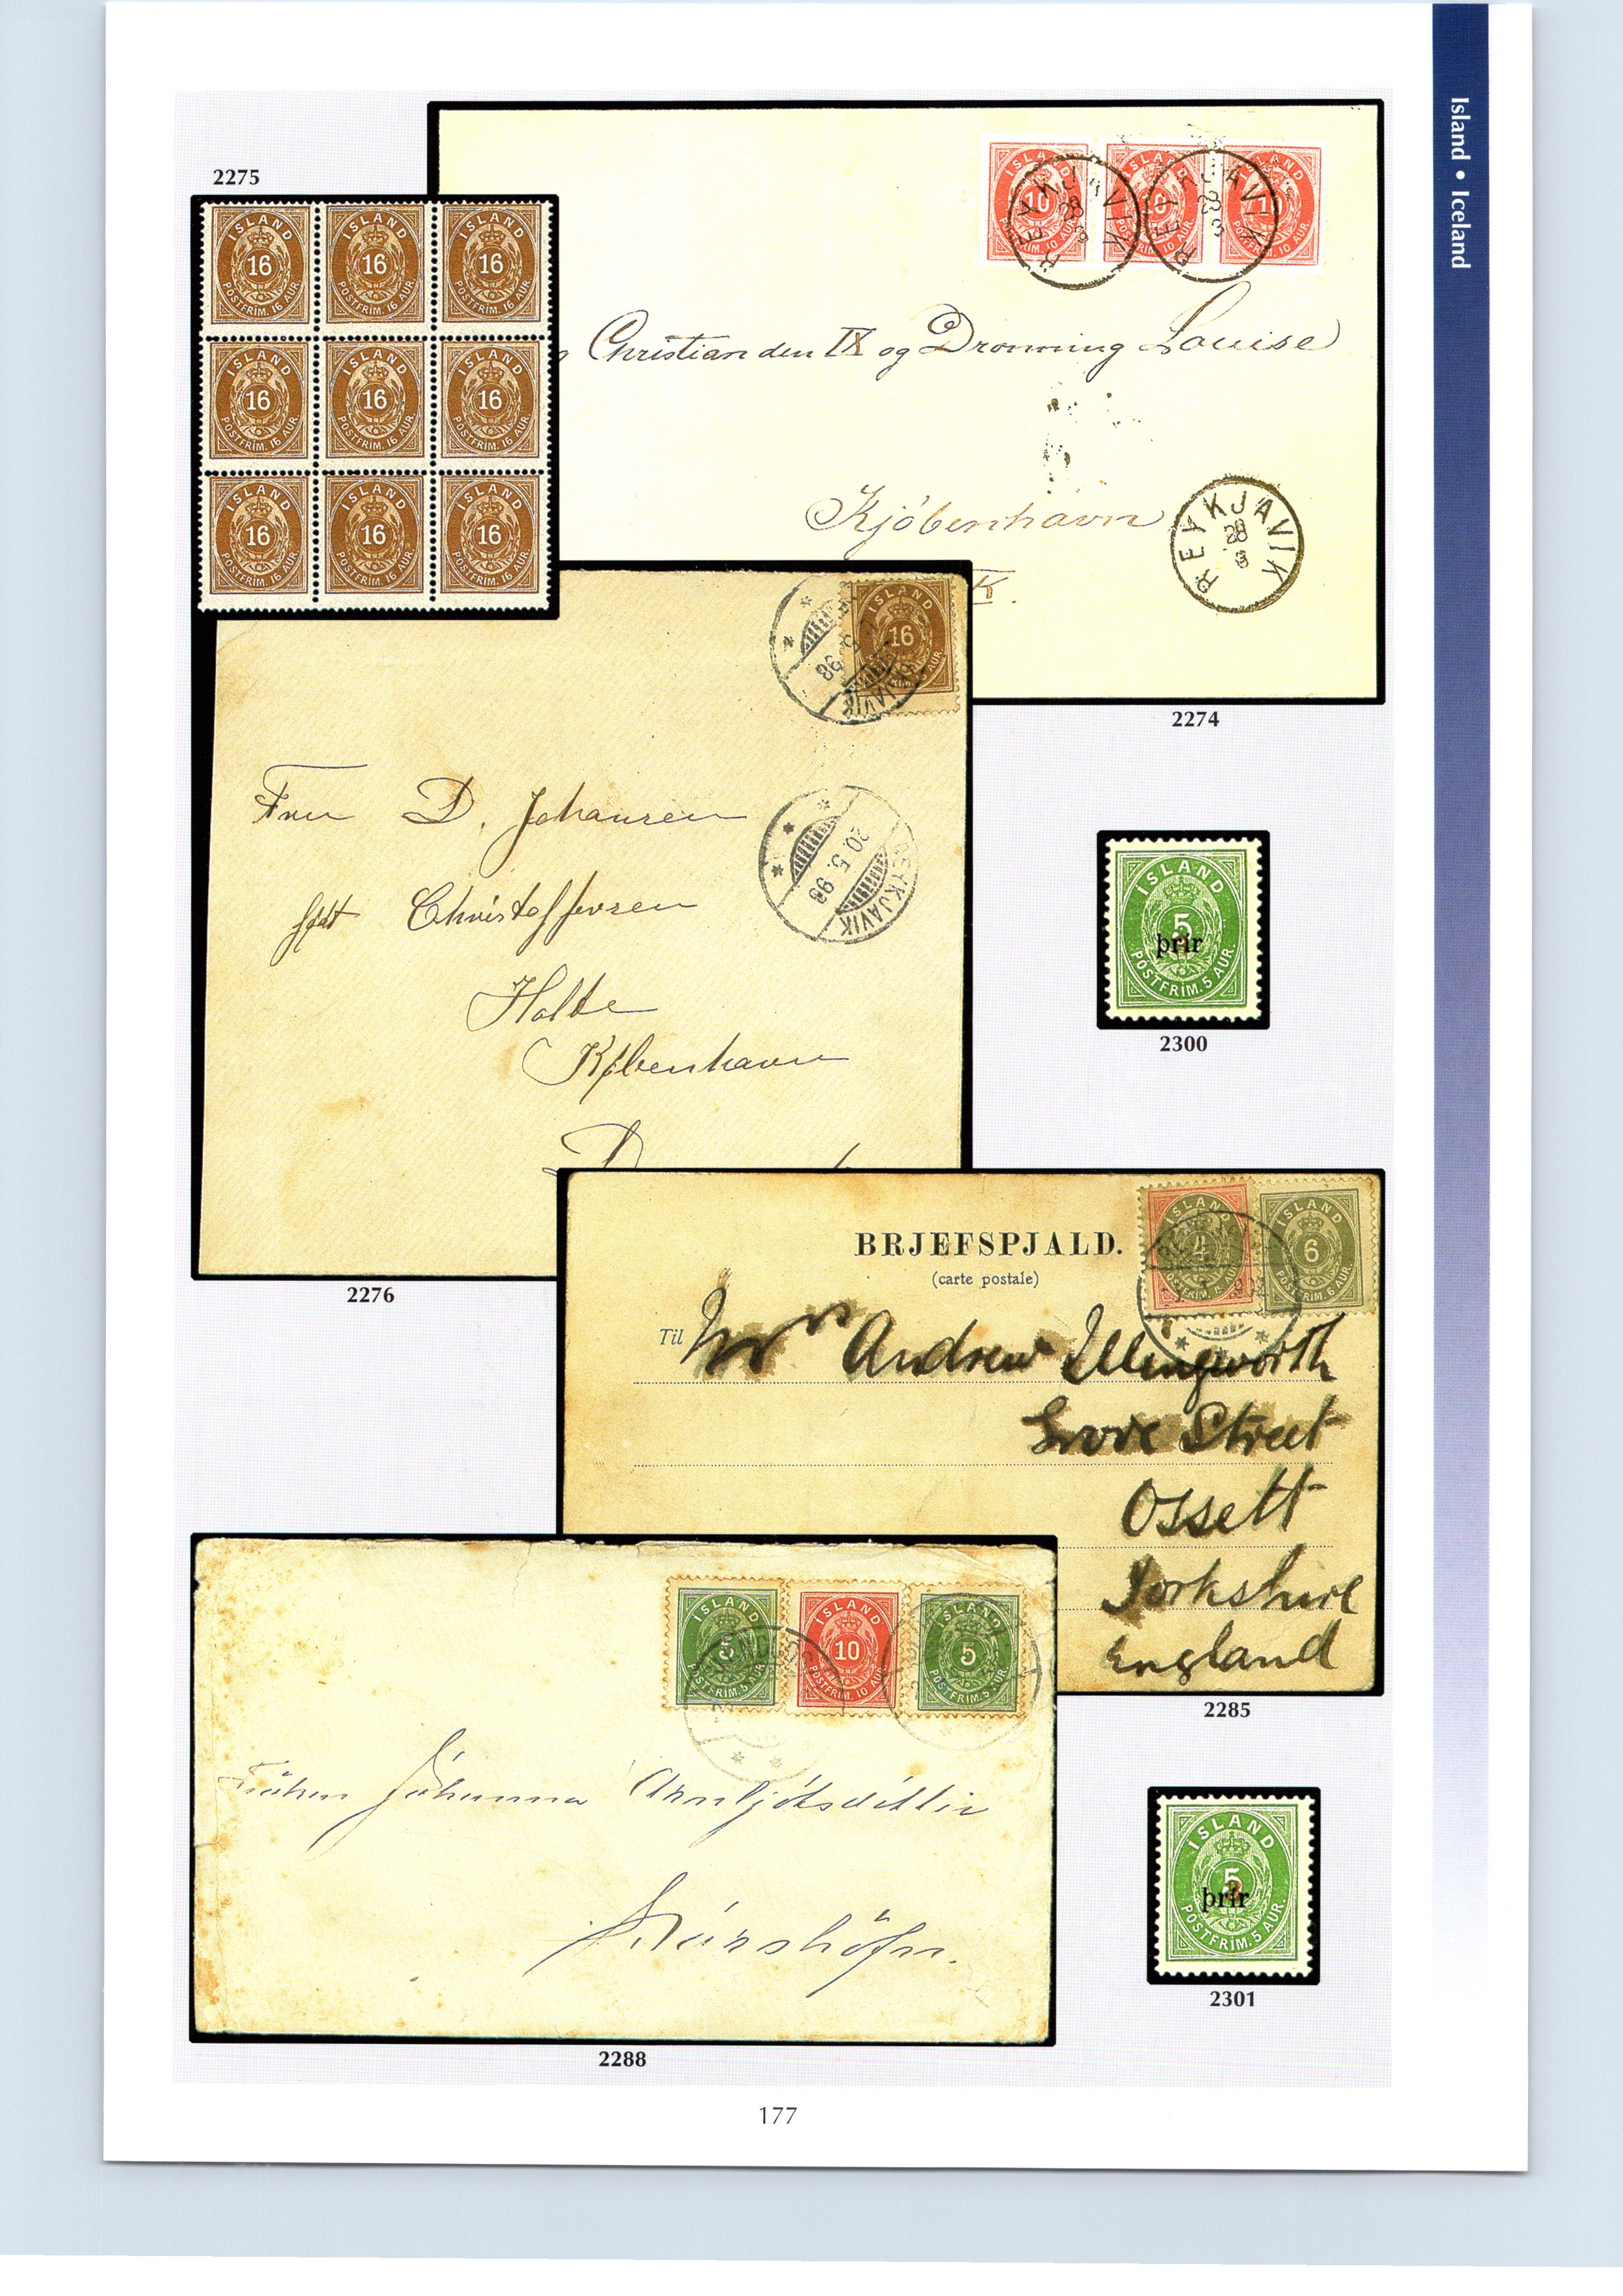 Island • Iceland
2275
ISLAND 16 POSTFRIM. 16 AUR.
ISLAND 16 POSTFRIM. 16 AUR.
ISLAND 16 POSTFRIM. 16 AUR.
ISLAND 16 POSTFRIM. 16 AUR.
ISLAND 16 POSTFRIM. 16 AUR.
ISLAND 16 POSTFRIM. 16 AUR.
ISLAND 16 POSTFRIM. 16 AUR.
ISLAND 16 POSTFRIM. 16 AUR.
ISLAND 16 POSTFRIM. 16 AUR.
ISLAND 10 POSTFRIM. 10 AUR.
REYKJAVIK 28 3
REYKJAVIK 28 3
Christian den IX og Dronning Louise
Kjöbenhavn
K.
REYKJAVIK 28 3
2274
ISLAND 16
98
Fru D. Johansen
født Christoffersen
Holte
København
D
REYKJAVIK 20.5.98
2276
ISLAND
5
þrír
POSTFRIM. 5 AUR.
2300
BRJEFSPJALD.
(carte postale)
ISLAND 4
ISLAND 6 POSTFRIM. 6 AUR.
Til Mrs Andrew Illingworth
Grove Street
Ossett
Yorkshire
England
2285
ISLAND 5 POSTFRIM. 5 AUR.
ISLAND 10 POSTFRIM. 10 AUR.
ISLAND 5 POSTFRIM. 5 AUR.
Fröken Jóhanna Arnljótsdóttir
Þórshöfn.
2288
ISLAND
5
þrír
POSTFRIM. 5 AUR.
2301
177